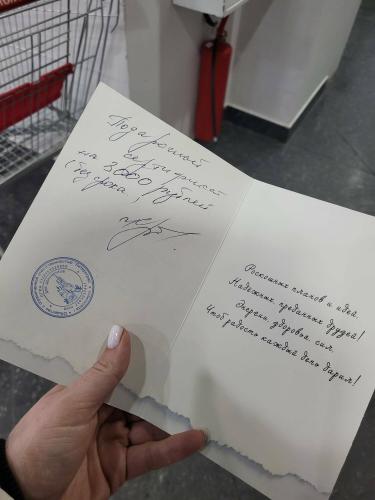 Подарочный
сертификат
на 3000 рублей
(без срока)
Роскошных планов и идей.
Надежных, преданных друзей!
Энергии, здоровья, сил,
Чтоб радость каждый день дарил!